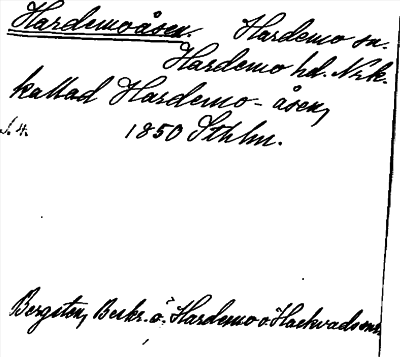 Hardemoåsen. Hardemo sn.
Hardemo hd. Nrk.
kallad Hardemo-åsen,
s. 4. 1850 Sthlm.
Bergsten, Beskr. ö. Hardemo o Hackvads snr.